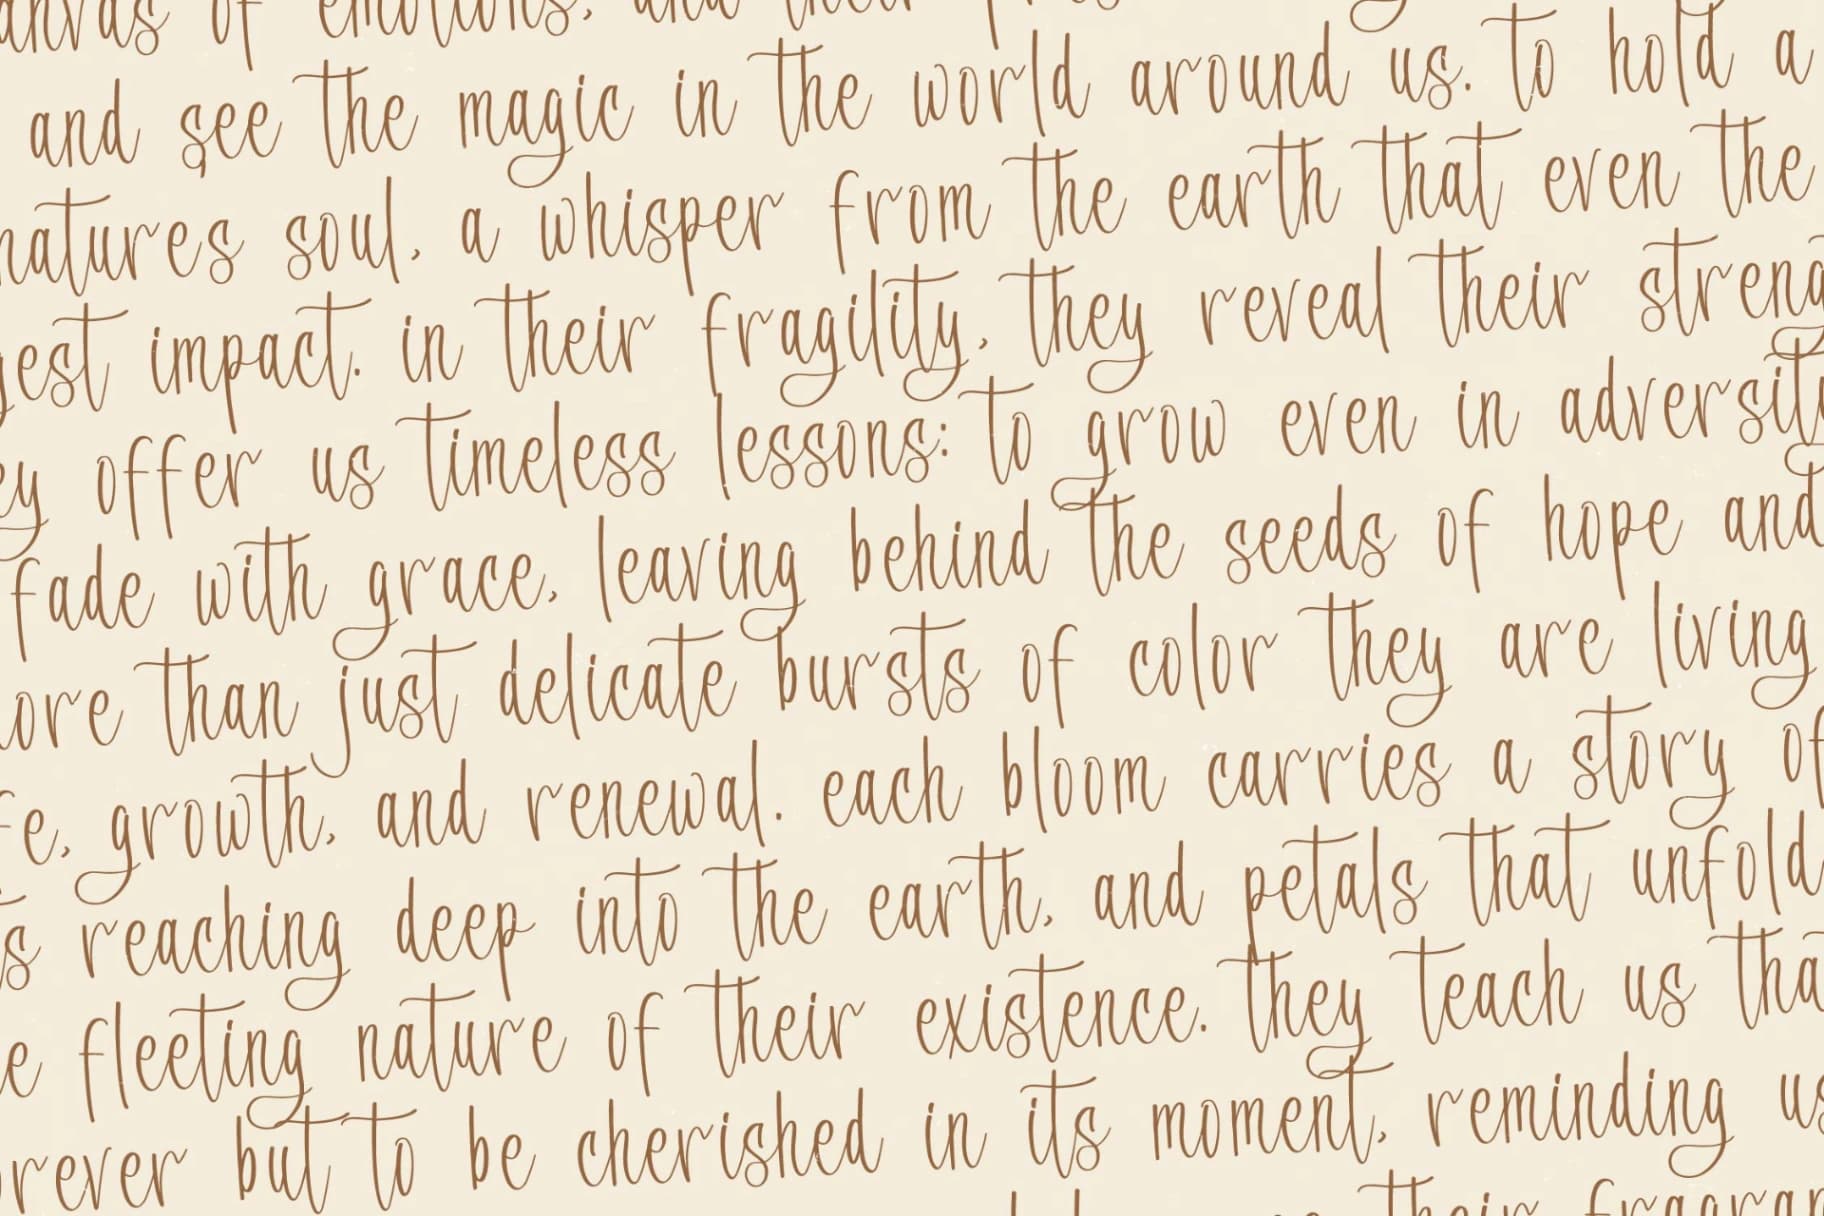 canvas of emotions, and their
and see the magic in the world around us. to hold a
natures soul, a whisper from the earth that even the
gest impact. in their fragility, they reveal their streng
ey offer us timeless lessons: to grow even in adversity
fade with grace, leaving behind the seeds of hope and
ore than just delicate bursts of color they are living
fe, growth, and renewal. each bloom carries a story of
s reaching deep into the earth, and petals that unfold
e fleeting nature of their existence. they teach us tha
orever but to be cherished in its moment, reminding us
their fragran